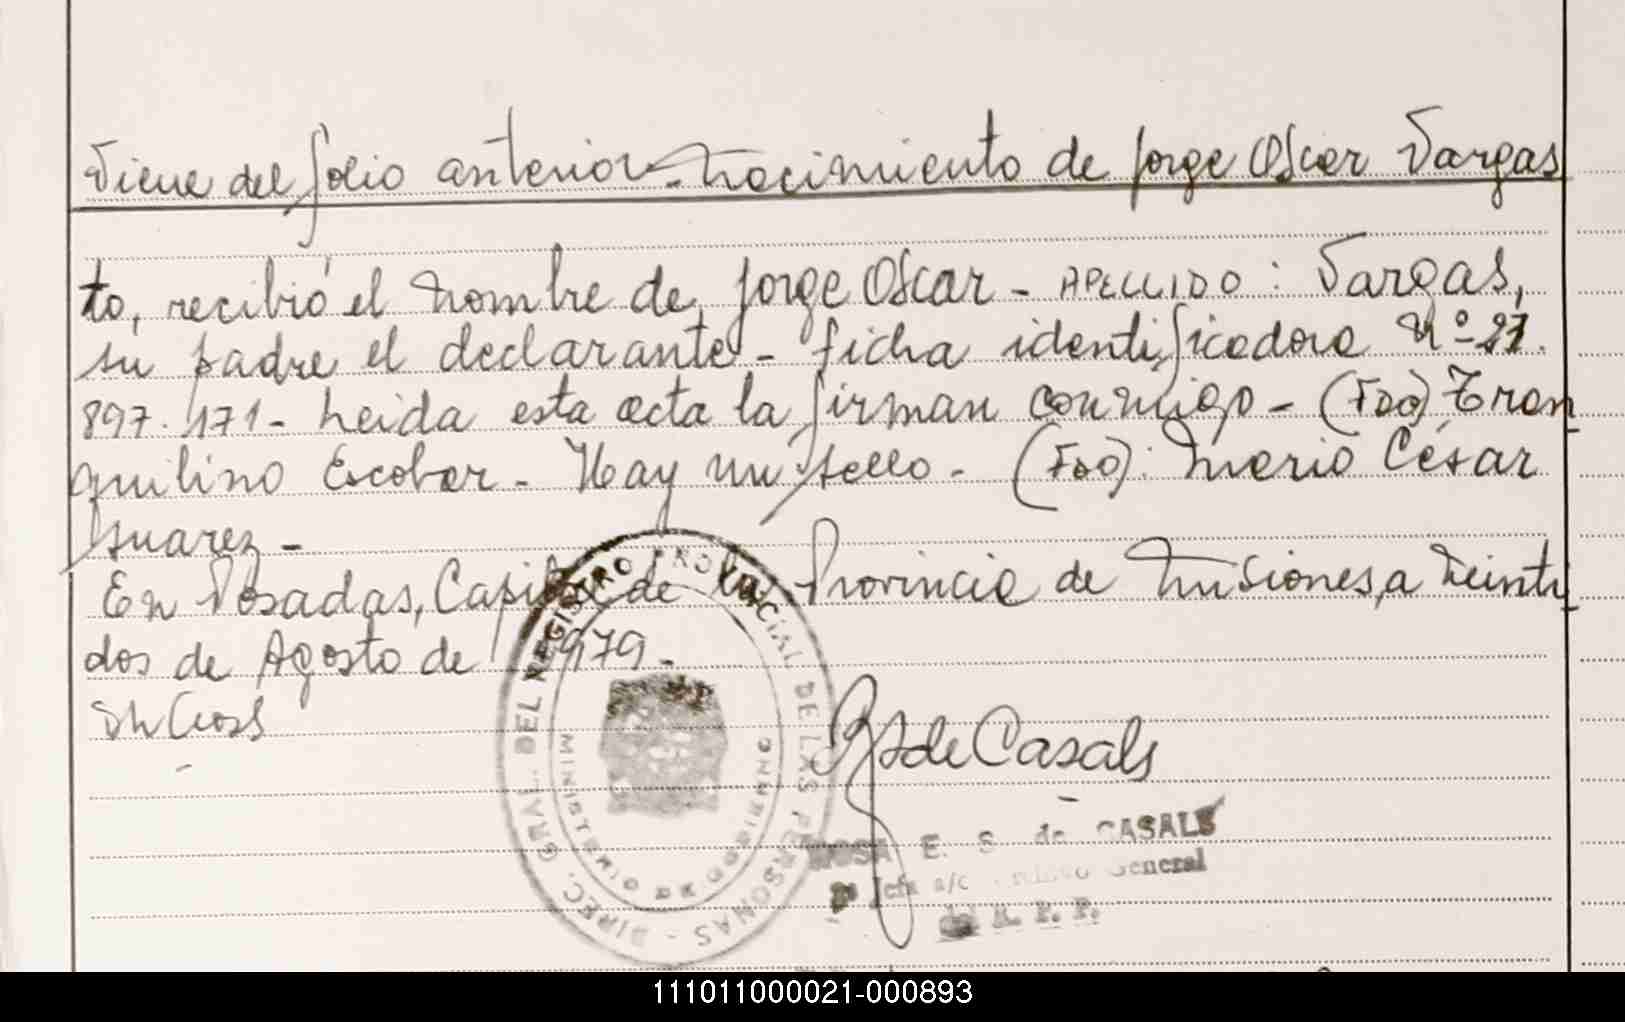 Viene del folio anterior - Nacimiento de Jorge Oscar Vargas
to, recibió el nombre de Jorge Oscar - APELLIDO: Vargas,
su padre el declarante - ficha identificadora Nº 27.
897.171 - Leida esta acta la firman conmigo - (FDO) Tran
quilino Escobar - Hay un sello - (FDO): Mario César
Suarez -
En Posadas, Capital de la Provincia de Misiones, a veinti
dos de Agosto de 1979 -
de Casals
DIREC. GRAL. DEL REGISTRO PROVINCIAL DE LAS PERSONAS -
MINISTERIO DE GOBIERNO
ROSA E. S. de CASALS
2º Jefe a/c Archivo General
del R. P. P.
111011000021-000893